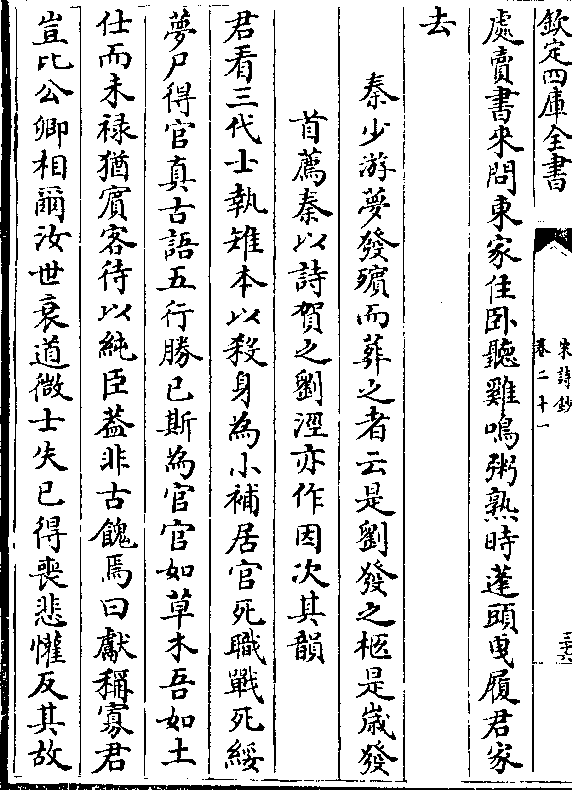 欽定四庫全書
宋詩鈔
卷二十一
三十六
處賣書來問東家住卧聽雞鳴粥熟時蓬頭曳履君家
去
秦少游夢發殯而葬之者云是劉發之柩是嵗發
首薦秦以詩賀之劉涇亦作因次其韻
君看三代士執雉本以殺身為小補居官死職戰死綏
夢尸得官真古語五行勝已斯為官官如草木吾如土
仕而未禄猶賓客待以純臣葢非古餽焉曰獻稱寡君
豈比公卿相爾汝世衰道微士失已得喪悲懽反其故